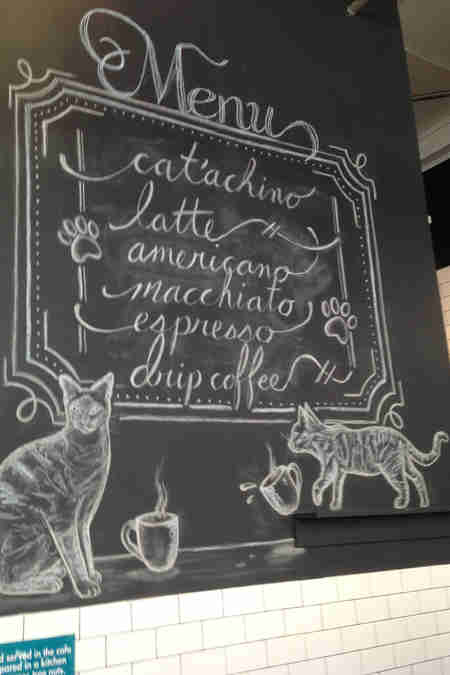 Menu
cat'achino
latte
americano
macchiato
espresso
drip coffee
served in the cafe
in a kitchen
tree nuts.